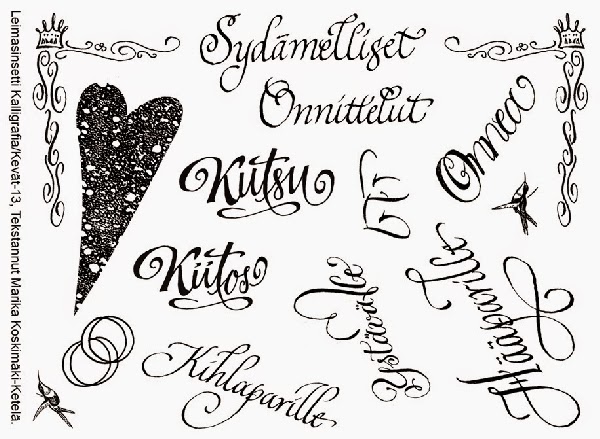 Sydämelliset
Onnittelut
Onnea
Kutsu
Kiitos
Ystävälle
Hääparille
Kihlaparille
Leimasinsetti Kalligrafia/Kevät-13, Tekstannut Marika Koskimäki-Ketelä.